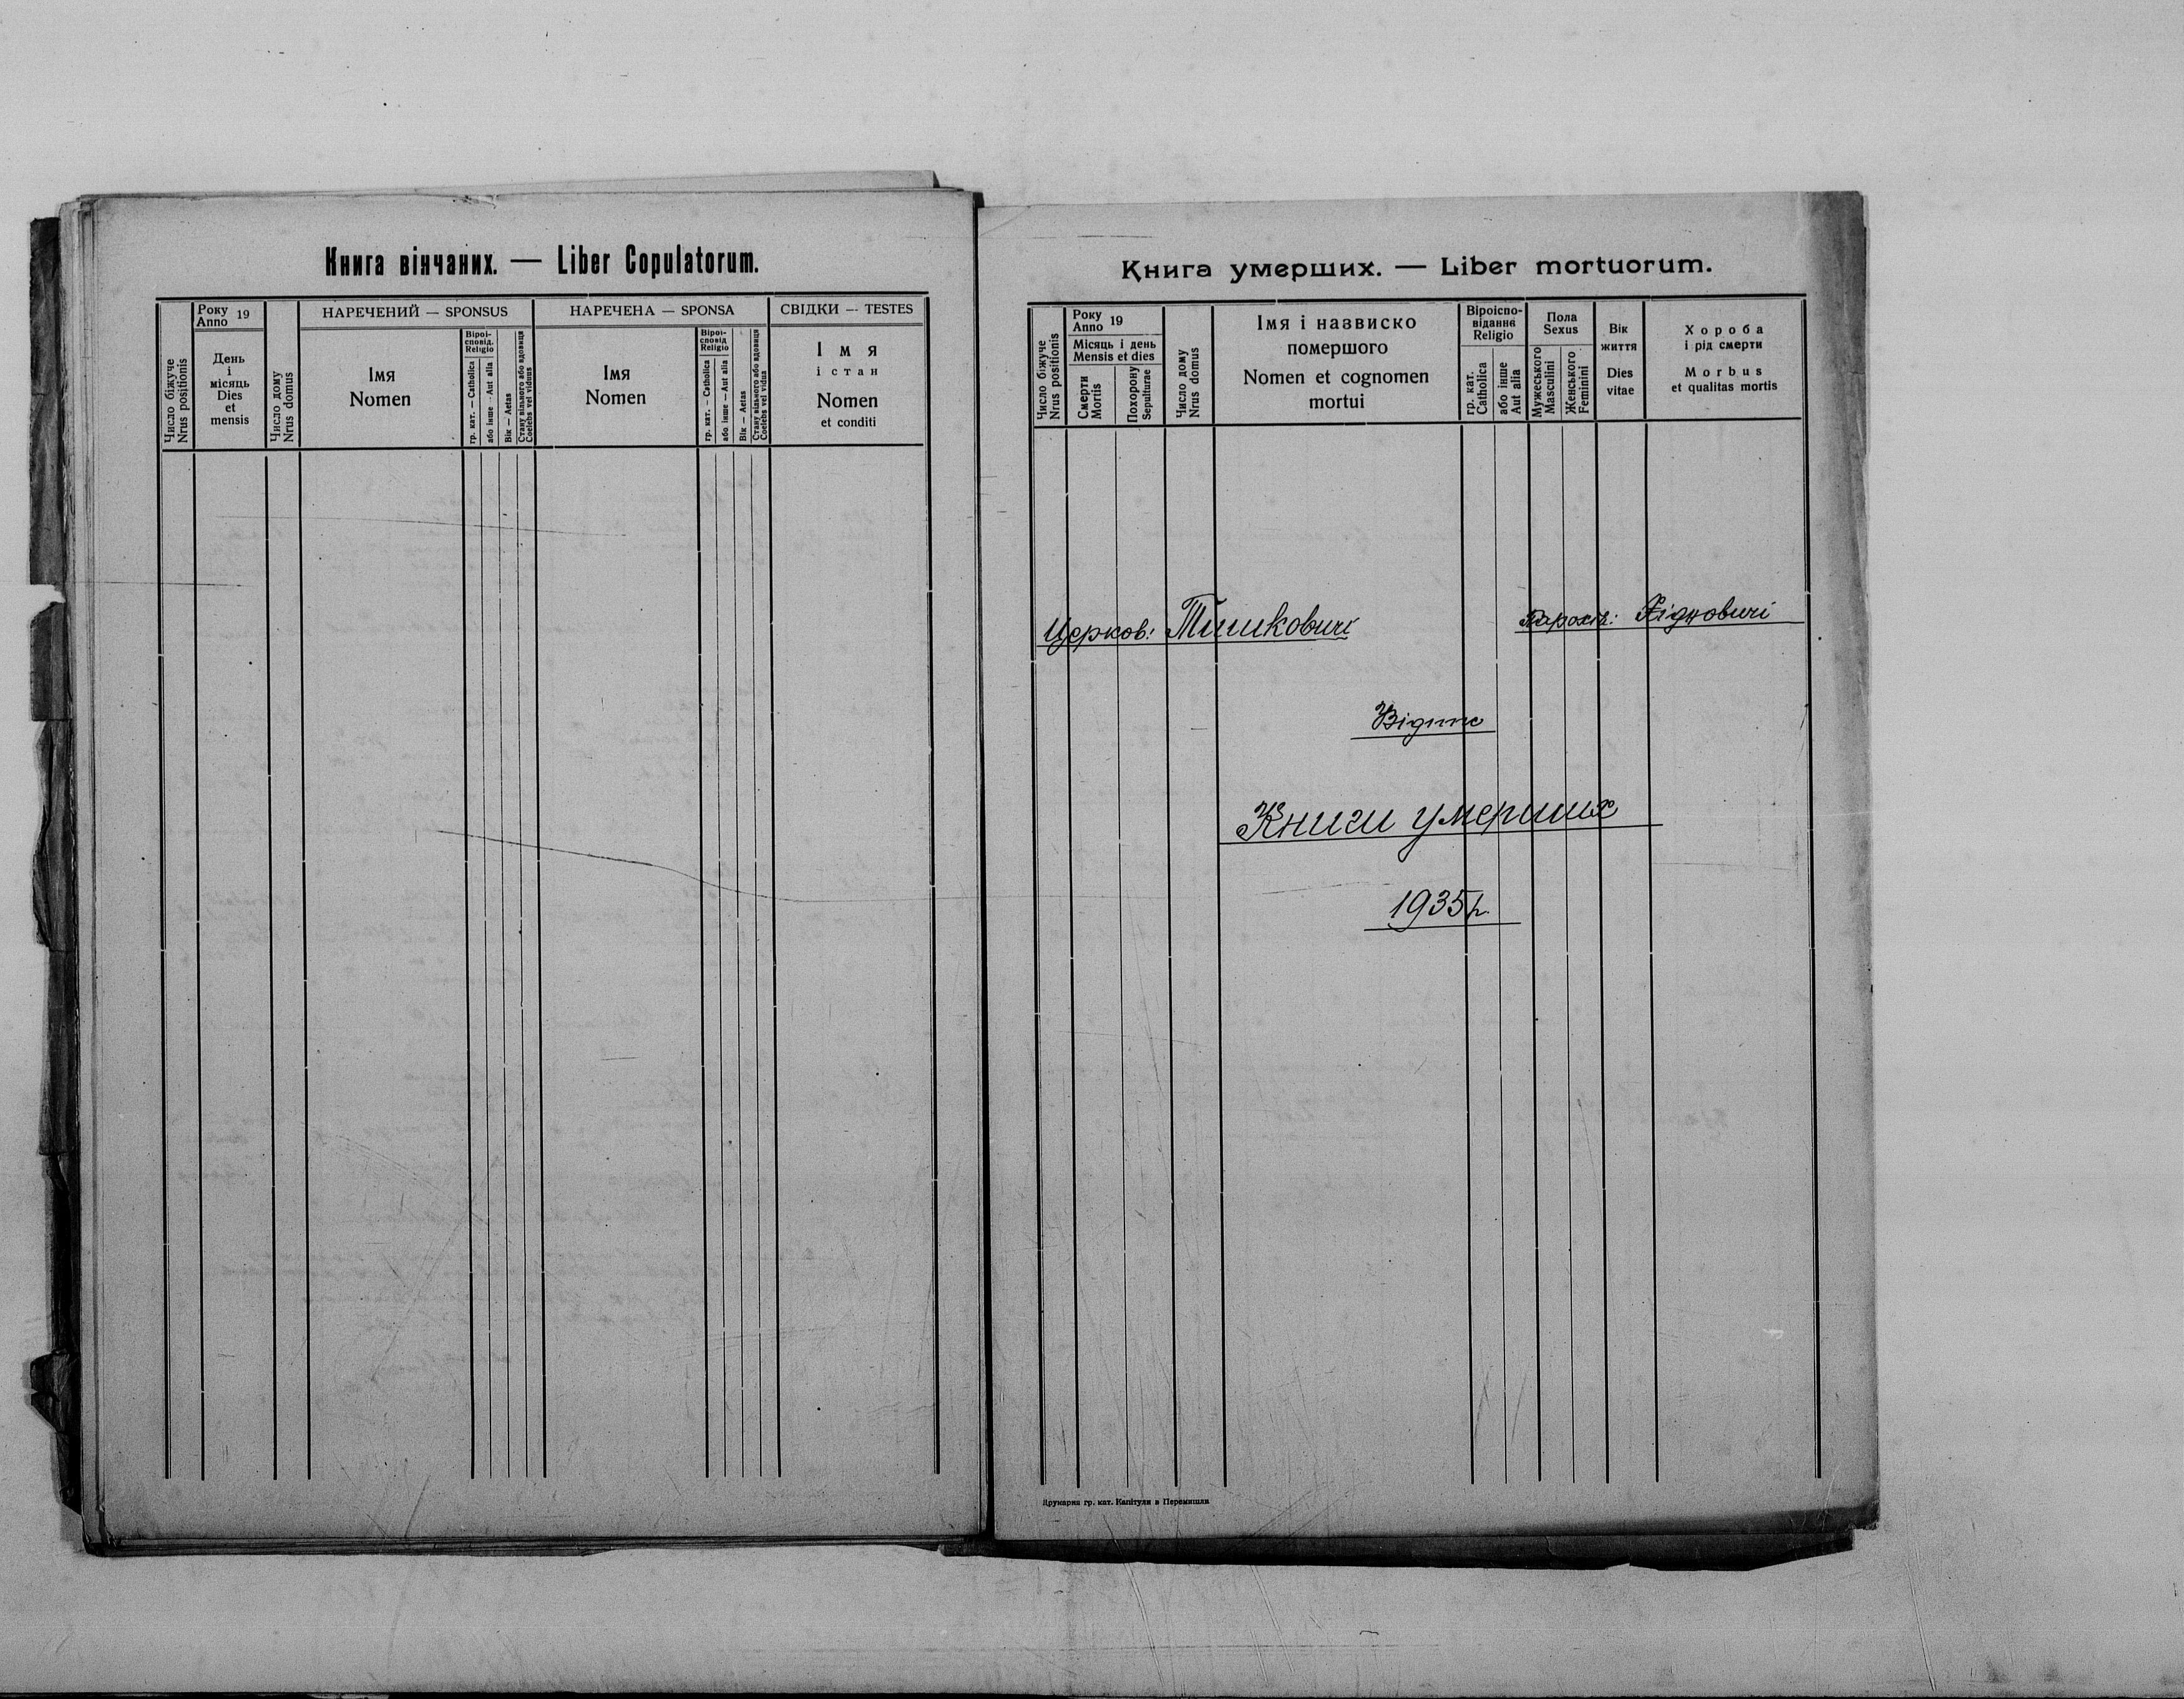 Книга вінчаних. — Liber Copulatorum.
Число біжуче
Nrus positionis
Року
Anno 19
День
і
місяць
Dies
et
mensis
Число дому
Nrus domus
НАРЕЧЕНИЙ — SPONSUS
Імя
Nomen
Віроі-
сповід.
Religio
гр. кат. — Catholica
або інше — Aut alia
Вік — Aetas
Стану вільного або вдовиця
Coelebs vel viduus
НАРЕЧЕНА — SPONSA
Імя
Nomen
Віроі-
сповід
Religio
гр. кат. — Catholica
або інше — Aut alia
Вік — Aetas
Стану вільного або вдовиця
Coelebs vel vidus
СВІДКИ — TESTES
Імя
і стан
Nomen
et conditi
Книга умерших. — Liber mortuorum.
Число біжуче
Nrus positionis
Року
Anno 19
Місяць і день
Mensis et dies
Смерти
Mortis
Похорону
Sepulturae
Число дому
Nrus domus
Імя і назвиско
помершого
Nomen et cognomen
mortui
Віроіспо-
відання
Religio
гр. кат.
Catholica
або інше
Aut alia
Пола
Sexus
Мужеського
Masculini
Женського
Feminini
Вік
життя
Dies
vitae
Хороба
і рід смерти
Morbus
et qualitas mortis
Церков: Тишковичі
Парохія: Хідновичі
Відпис
Книги умерших
1935 р.
Друкарня гр. кат. Капітули в Перемишли